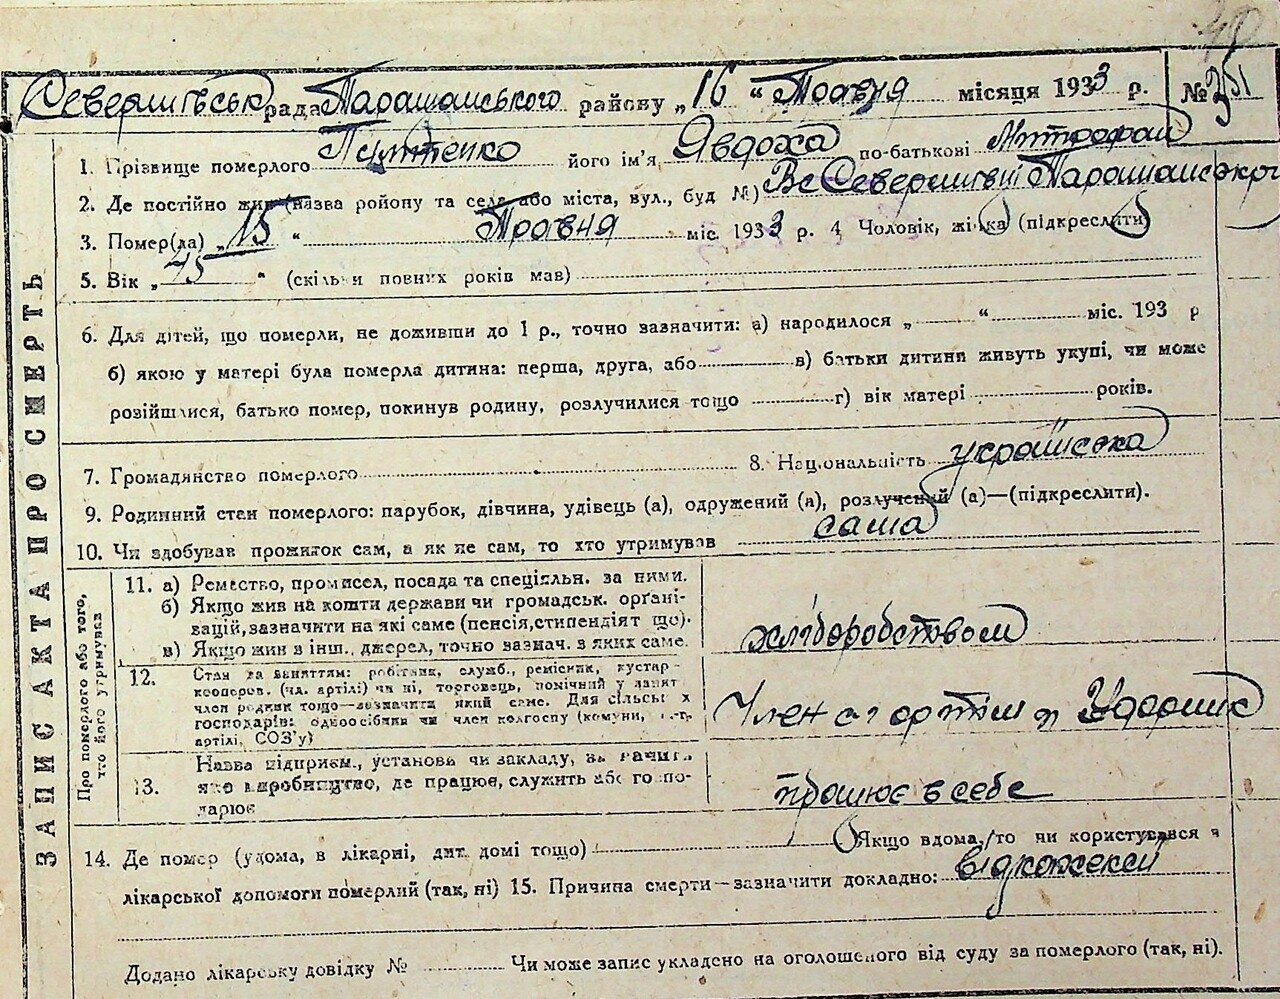 Северинівськ рада Таращанського району „16“ Травня місяця 1933 р. №
1. Прізвище померлого його ім'я Явдоха по-батькові Митрофан
2. Де постійно жив (назва району та села або міста, вул., буд №) Вс Северинівці Таращанськго
3. Помер(ла) „15“ Травня міс. 1933 р. 4 Чоловік, жінка (підкреслити)
5. Вік „45“ (скільки повних років мав)
6. Для дітей, що померли, не доживши до 1 р., точно зазначити: а) народилося „ “ міс. 193 р
б) якою у матері була померла дитина: перша, друга, або в) батьки дитини живуть укупі, чи може
розійшлися, батько помер, покинув родину, розлучилися тощо г) вік матері років.
7. Громадянство померлого 8. Національність українська
9. Родинний стан померлого: парубок, дівчина, удівець (а), одружений (а), розлучений (а)—(підкреслити).
10. Чи здобував прожиток сам, а як не сам, то хто утримував сама
ЗАПИС АКТА ПРО СМЕРТЬ
Про померлого або того,
хто його утримував
11. а) Ремество, промисел, посада та спеціяльн. за ними.
б) Якщо жив на кошти держави чи громадськ. орґані-
зацій, зазначити на які саме (пенсія, стипендіят що).
в) Якщо жив в інш. джерел, точно зазнач. з яких саме.
хліборобством
12. Стан за заняттям: робітник, служб., ремісник, кустар-
кооперов. (чл. артілі) чи ні, торговець, помічний у занят
член родини тощо—зазначити який саме. Для сільськ х
господарів: одноосібник чи член колгоспу (комуни, с.-г.
артілі, СОЗ'у)
Член с г артіли Ударник
13. Назва підприєм., установи чи закладу, зазначит.
яке виробництво, де працює, служить або госпо-
дарює
працює в себе
14. Де помер (удома, в лікарні, дит. домі тощо) Якщо вдома, то чи користувався
лікарської допомоги померлий (так, ні) 15. Причина смерти—зазначити докладно: від
Додано лікарську довідку № Чи може запис укладено на оголошеного від суду за померлого (так, ні).